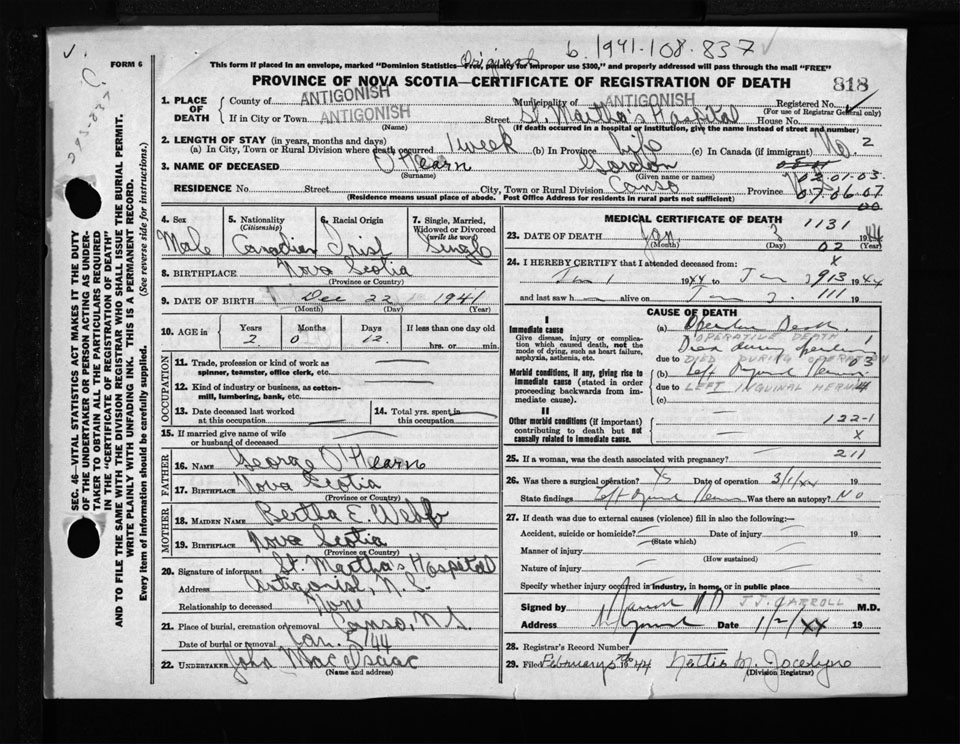 Original 6. 1941.108.837
FORM 6 This form if placed in an envelope, marked "Dominion Statistics—Free, penalty for improper use $300," and properly addressed will pass through the mail "FREE"
PROVINCE OF NOVA SCOTIA—CERTIFICATE OF REGISTRATION OF DEATH 818
1. PLACE OF DEATH County of ANTIGONISH Municipality of ANTIGONISH Registered No.
(For use of Registrar General only)
If in City or Town ANTIGONISH Street St. Martha's Hospital House No.
(Name) (If death occurred in a hospital or institution, give the name instead of street and number)
2. LENGTH OF STAY (in years, months and days)
(a) In City, Town or Rural Division where death occurred 1 week (b) In Province Life (c) In Canada (if immigrant) No. 2
3. NAME OF DECEASED O'Hearn Gordon
(Surname) (Given name or names) 03.01.03.
RESIDENCE No. Street City, Town or Rural Division Canso Province 07.06.07
(Residence means usual place of abode. Post Office Address for residents in rural parts not sufficient) 00
4. Sex Male
5. Nationality (Citizenship) Canadian
6. Racial Origin Irish
7. Single, Married, Widowed or Divorced (write the word) Single
8. BIRTHPLACE Nova Scotia
(Province or Country)
9. DATE OF BIRTH Dec 22 1941
(Month) (Day) (Year)
10. AGE in Years 2 Months 0 Days 12. If less than one day old
hrs. or min.
OCCUPATION
11. Trade, profession or kind of work as spinner, teamster, office clerk, etc.
12. Kind of industry or business, as cotton-mill, lumbering, bank, etc.
13. Date deceased last worked at this occupation
14. Total yrs. spent in this occupation
15. If married give name of wife or husband of deceased
FATHER
16. NAME George O'Hearn
17. BIRTHPLACE Nova Scotia
(Province or Country)
MOTHER
18. MAIDEN NAME Bertha E Webb
19. BIRTHPLACE Nova Scotia
(Province or Country)
20. Signature of informant St. Martha's Hospital
Address Antigonish, N.S.
Relationship to deceased None
21. Place of burial, cremation or removal Canso, N.S.
Date of burial or removal Jan. 5 '44
22. UNDERTAKER John MacIsaac
(Name and address)
MEDICAL CERTIFICATE OF DEATH
1131
23. DATE OF DEATH Jan. 3 1944
(Month) (Day) 02 (Year)
24. I HEREBY CERTIFY that I attended deceased from X
Jan 1 1944 to Jan 3 913 1944
and last saw h alive on Jan 3. 111 19
CAUSE OF DEATH
I
Immediate cause
Give disease, injury, or complication which caused death, not the mode of dying, such as heart failure, asphyxia, asthenia, etc.
(a) Operative Death.
OPERATIVE DEATH
Died during operation
due to DIED DURING OPERATION
Morbid conditions, if any, giving rise to immediate cause (stated in order proceeding backwards from immediate cause).
(b) Left Inguinal Hernia
due to LEFT INGUINAL HERNIA
(c)
II
Other morbid conditions (if important) contributing to death but not causally related to immediate cause.
122-1
X
211
25. If a woman, was the death associated with pregnancy?
26. Was there a surgical operation? Yes Date of operation 3/1/44
State findings Left Inguinal Hernia Was there an autopsy? No
27. If death was due to external causes (violence) fill in also the following:—
Accident, suicide or homicide? Date of injury 19
(State which)
Manner of injury
(How sustained)
Nature of injury
Specify whether injury occurred in industry, in home, or in public place
Signed by J.J. CARROLL M.D.
Address Date 19
28. Registrar's Record Number
29. Filed February 5th 1944
(Division Registrar)
SEC. 46—VITAL STATISTICS ACT MAKES IT THE DUTY
OF THE UNDERTAKER OR PERSON ACTING AS UNDERTAKER TO OBTAIN ALL THE PARTICULARS REQUIRED
IN THE "CERTIFICATE OF REGISTRATION OF DEATH"
AND TO FILE THE SAME WITH THE DIVISION REGISTRAR WHO SHALL ISSUE THE BURIAL PERMIT.
WRITE PLAINLY WITH UNFADING INK. THIS IS A PERMANENT RECORD.
Every item of information should be carefully supplied. (See reverse side for instructions.)